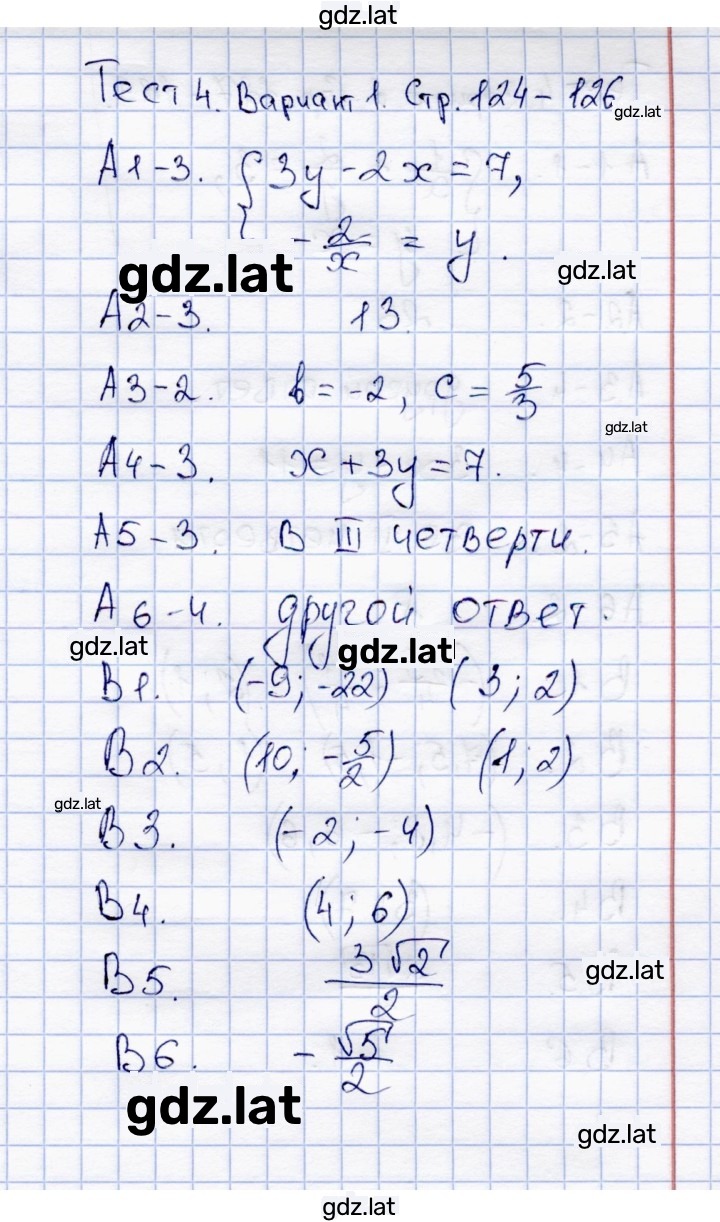 gdz.lat
Тест 4. Вариант 1. Стр. 124 - 126
gdz.lat
А1-3. { 3y - 2x = 7,
- 2/x = y.
gdz.lat
gdz.lat
А2-3. 13.
А3-2. b = -2, c = 5/3
gdz.lat
А4-3. x + 3y = 7.
А5-3. В III четверти.
А6-4. другой ответ.
gdz.lat
gdz.lat
В1. (-9; -22) (3; 2)
В2. (10; -5/2) (1; 2)
gdz.lat
В3. (-2; -4)
В4. (4; 6)
В5. 3√2/2
gdz.lat
В6. - √5/2
gdz.lat
gdz.lat
gdz.lat